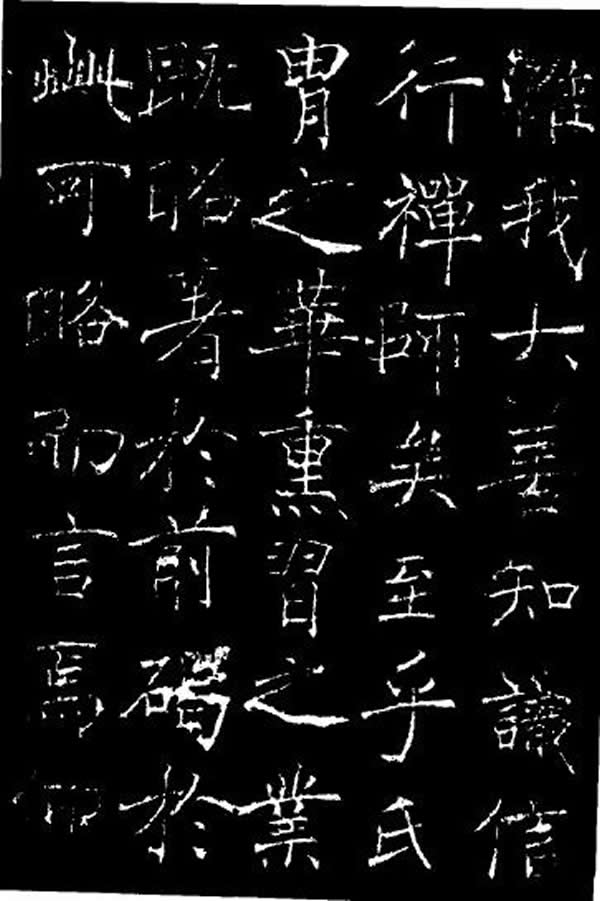 難我大善知識信
行禪師矣至乎氏
胄之華熏習之業
既昭著於前碣於
此可略而言焉仰